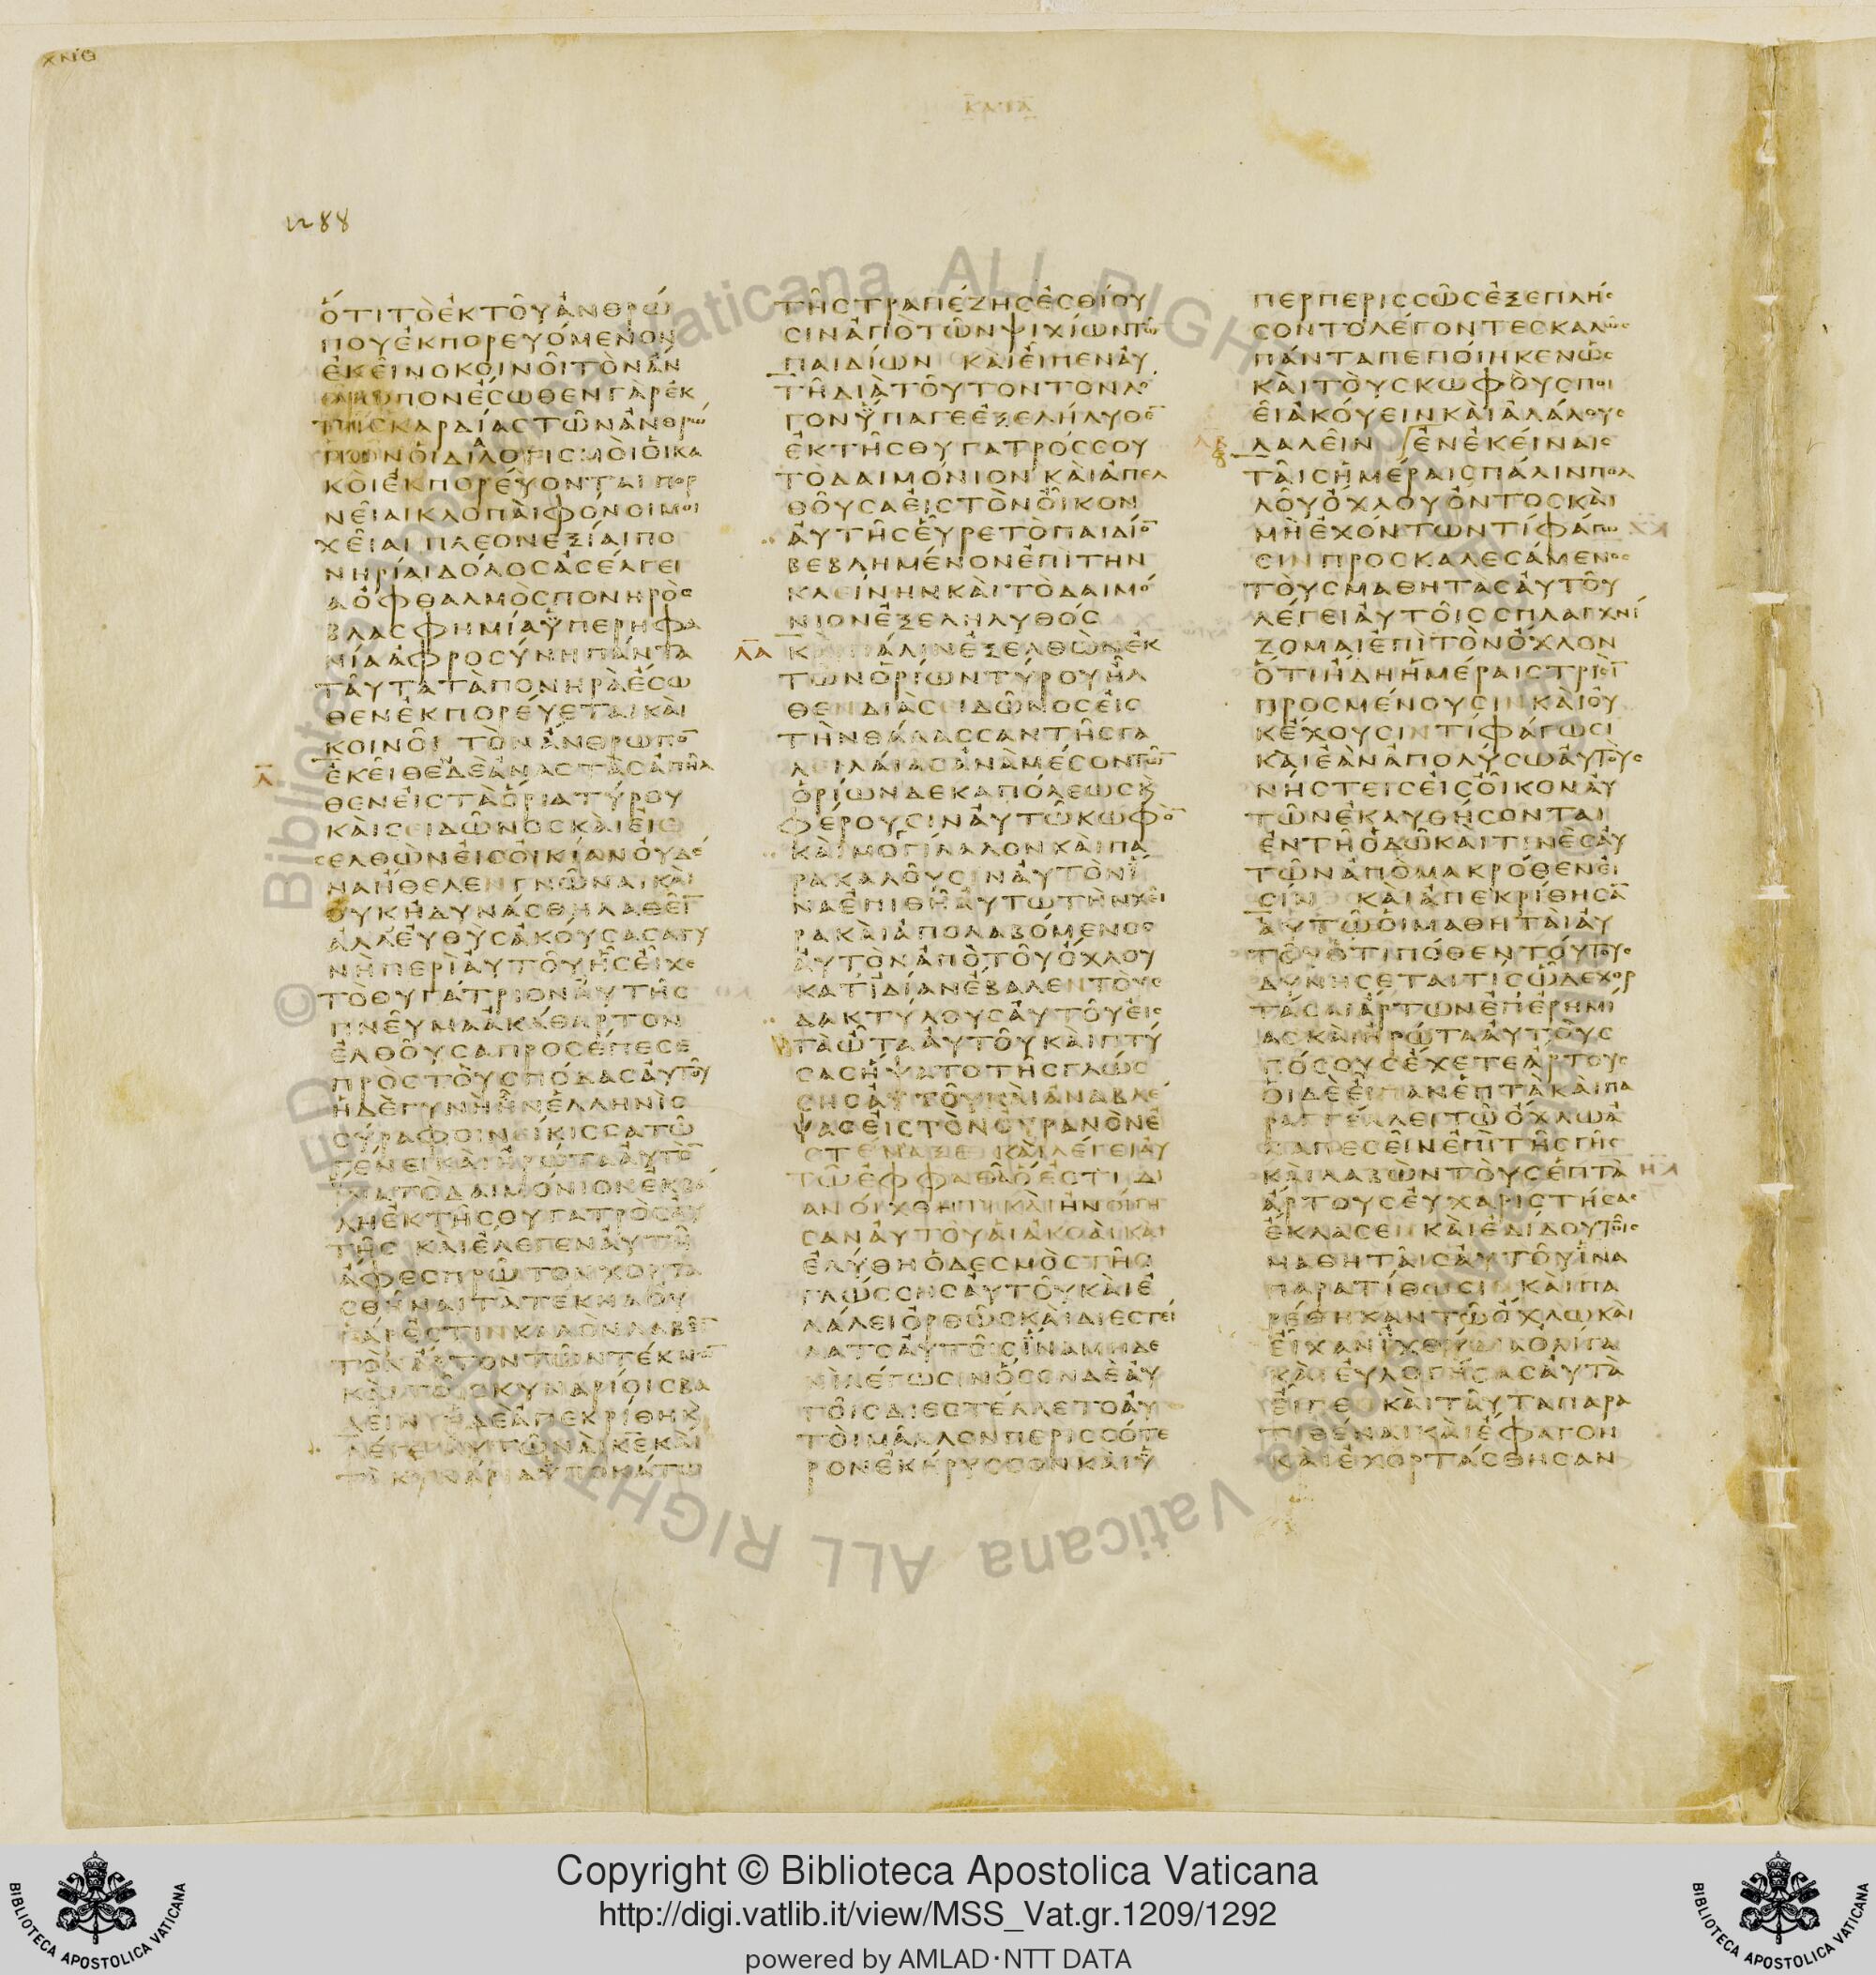 ΧΝΘ
ΚΑΤΑ
1288
ΟΤΙΤΟΕΚΤΟΥΑΝΘΡΩ
ΠΟΥΕΚΠΟΡΕΥΟΜΕΝΟΝ
ΕΚΕΙΝΟΚΟΙΝΟΙΤΟΝΑΝ
ΘΡΩΠΟΝΕϹΩΘΕΝΓΑΡΕΚ
ΤΗϹΚΑΡΔΙΑϹΤΩΝΑΝΘΡΩ
ΠΩΝΟΙΔΙΑΛΟΓΙϹΜΟΙΟΙΚΑ
ΚΟΙΕΚΠΟΡΕΥΟΝΤΑΙΠΟΡ
ΝΕΙΑΙΚΛΟΠΑΙΦΟΝΟΙΜΟΙ
ΧΕΙΑΙΠΛΕΟΝΕΞΙΑΙΠΟ
ΝΗΡΙΑΙΔΟΛΟϹΑϹΕΛΓΕΙ
ΑΟΦΘΑΛΜΟϹΠΟΝΗΡΟϹ
ΒΛΑϹΦΗΜΙΑΫΠΕΡΗΦΑ
ΝΙΑΑΦΡΟϹΥΝΗΠΑΝΤΑ
ΤΑΥΤΑΤΑΠΟΝΗΡΑΕϹΩ
ΘΕΝΕΚΠΟΡΕΥΕΤΑΙΚΑΙ
ΚΟΙΝΟΙ ΤΟΝΑΝΘΡΩΠΟ̅
Λ̅ ΕΚΕΙΘΕΔΕΑΝΑϹΤΑϹΑΠΗΛ
ΘΕΝΕΙϹΤΑΟΡΙΑΤΥΡΟΥ
ΚΑΙϹΕΙΔΩΝΟϹΚΑΙΕΙϹ
ΕΛΘΩΝΕΙϹΟΙΚΙΑΝΟΥΔΕ
ΝΑΗΘΕΛΕΝΓΝΩΝΑΙΚΑΙ
ΟΥΚΗΔΥΝΑϹΘΗΛΑΘΕΙ̅
ΑΛΛΕΥΘΥϹΑΚΟΥϹΑϹΑΓΥ
ΝΗΠΕΡΙΑΥΤΟΥΗϹΕΙΧΕ
ΤΟΘΥΓΑΤΡΙΟΝΑΥΤΗϹ
ΠΝΕΥΜΑΑΚΑΘΑΡΤΟΝ
ΕΛΘΟΥϹΑΠΡΟϹΕΠΕϹΕ
ΠΡΟϹΤΟΥϹΠΟΔΑϹΑΥΤΟΥ
ΗΔΕΓΥΝΗΗΝΕΛΛΗΝΙϹ
ϹΥΡΑΦΟΙΝΕΙΚΙϹϹΑΤΩ
ΓΕΝΕΙΚΑΙΗΡΩΤΑΑΥΤΟ̅
ΪΝΑΤΟΔΑΙΜΟΝΙΟΝΕΚΒΑ
ΛΗΕΚΤΗϹΘΥΓΑΤΡΟϹΑΥ
ΤΗϹ ΚΑΙΕΛΕΓΕΝΑΥΤΗ
ΑΦΕϹΠΡΩΤΟΝΧΟΡΤΑ
ϹΘΗΝΑΙΤΑΤΕΚΝΑΟΥ
ΓΑΡΕϹΤΙΝΚΑΛΟΝΛΑΒΕΙ̅
ΤΟΝΑΡΤΟΝΤΩΝΤΕΚΝΩ̅
ΚΑΙΤΟΙϹΚΥΝΑΡΙΟΙϹΒΑ
ΛΕΙΝ ΗΔΕΑΠΕΚΡΙΘΗΚ
ΛΕΓΕΙΑΥΤΩΝΑΙΚΕΚΑΙ
ΤΑΚΥΝΑΡΙΑΫΠΟΚΑΤΩ
ΤΗϹΤΡΑΠΕΖΗϹΕϹΘΙΟΥ
ϹΙΝΑΠΟΤΩΝΨΙΧΙΩΝΤΩ̅
ΠΑΙΔΙΩΝ ΚΑΙΕΙΠΕΝΑΥ
ΤΗΔΙΑΤΟΥΤΟΝΤΟΝΛΟ
ΓΟΝΫΠΑΓΕΕΞΕΛΗΛΥΘΕ̅
ΕΚΤΗϹΘΥΓΑΤΡΟϹϹΟΥ
ΤΟΔΑΙΜΟΝΙΟΝ ΚΑΙΑΠΕΛ
ΘΟΥϹΑΕΙϹΤΟΝΟΙΚΟΝ
ΑΥΤΗϹΕΥΡΕΤΟΠΑΙΔΙΟ̅
ΒΕΒΛΗΜΕΝΟΝΕΠΙΤΗΝ
ΚΛΕΙΝΗΝΚΑΙΤΟΔΑΙΜΟ
ΝΙΟΝΕΞΕΛΗΛΥΘΟϹ
Λ̅Α̅ ΚΑΙΠΑΛΙΝΕΞΕΛΘΩΝΕΚ
ΤΩΝΟΡΙΩΝΤΥΡΟΥΗΛ
ΘΕΝΔΙΑϹΕΙΔΩΝΟϹΕΙϹ
ΤΗΝΘΑΛΑϹϹΑΝΤΗϹΓΑ
ΛΕΙΛΑΙΑϹΑΝΑΜΕϹΟΝΤΩ̅
ΟΡΙΩΝΔΕΚΑΠΟΛΕΩϹΚ
ΦΕΡΟΥϹΙΝΑΥΤΩΚΩΦΟ̅
ΚΑΙΜΟΓΙΛΑΛΟΝΚΑΙΠΑ
ΡΑΚΑΛΟΥϹΙΝΑΥΤΟΝΪ
ΝΑΕΠΙΘΗΑΥΤΩΤΗΝΧΕΙ
ΡΑΚΑΙΑΠΟΛΑΒΟΜΕΝΟϹ
ΑΥΤΟΝΑΠΟΤΟΥΟΧΛΟΥ
ΚΑΤΙΔΙΑΝΕΒΑΛΕΝΤΟΥϹ
ΔΑΚΤΥΛΟΥϹΑΥΤΟΥΕΙϹ
ΤΑΩΤΑΑΥΤΟΥΚΑΙΠΤΥ
ϹΑϹΗΨΑΤΟΤΗϹΓΛΩϹ
ϹΗϹΑΥΤΟΥΚΑΙΑΝΑΒΛΕ
ΨΑϹΕΙϹΤΟΝΟΥΡΑΝΟΝΕ
ϹΤΕΝΑΞΕΝΚΑΙΛΕΓΕΙΑΥ
ΤΩΕΦΦΑΘΑΟΕϹΤΙΔΙ
ΑΝΟΙΧΘΗΤΙΚΑΙΗΝΟΙΓΗ
ϹΑΝΑΥΤΟΥΑΙΑΚΟΑΙΚΑΙ
ΕΛΥΘΗΟΔΕϹΜΟϹΤΗϹ
ΓΛΩϹϹΗϹΑΥΤΟΥΚΑΙΕ
ΛΑΛΕΙΟΡΘΩϹΚΑΙΔΙΕϹΤΕΙ
ΛΑΤΟΑΥΤΟΙϹΪΝΑΜΗΔΕ
ΝΙΛΕΓΩϹΙΝΟϹΟΝΔΕΑΥ
ΤΟΙϹΔΙΕϹΤΕΛΛΕΤΟΑΥ
ΤΟΙΜΑΛΛΟΝΠΕΡΙϹϹΟΤΕ
ΡΟΝΕΚΗΡΥϹϹΟΝΚΑΙΫ
ΠΕΡΠΕΡΙϹϹΩϹΕΞΕΠΛΗϹ
ϹΟΝΤΟΛΕΓΟΝΤΕϹΚΑΛΩϹ
ΠΑΝΤΑΠΕΠΟΙΗΚΕΝΩϹ
ΚΑΙΤΟΥϹΚΩΦΟΥϹΠΟΙ
ΕΙΑΚΟΥΕΙΝΚΑΙΑΛΑΛΟΥϹ
Λ̅Β̅ ΛΑΛΕΙΝ ΕΝΕΚΕΙΝΑΙϹ
ΤΑΙϹΗΜΕΡΑΙϹΠΑΛΙΝΠΟΛ
ΛΟΥΟΧΛΟΥΟΝΤΟϹΚΑΙ
ΜΗΕΧΟΝΤΩΝΤΙΦΑΓΩ
ϹΙΝΠΡΟϹΚΑΛΕϹΑΜΕΝΟϹ
ΤΟΥϹΜΑΘΗΤΑϹΑΥΤΟΥ
ΛΕΓΕΙΑΥΤΟΙϹϹΠΛΑΓΧΝΙ
ΖΟΜΑΙΕΠΙΤΟΝΟΧΛΟΝ
ΟΤΙΗΔΗΗΜΕΡΑΙϹΤΡΙϹΙ̅
ΠΡΟϹΜΕΝΟΥϹΙΝΚΑΙΟΥ
ΚΕΧΟΥϹΙΝΤΙΦΑΓΩϹΙ
ΚΑΙΕΑΝΑΠΟΛΥϹΩΑΥΤΟΥϹ
ΝΗϹΤΕΙϹΕΙϹΟΙΚΟΝΑΥ
ΤΩΝΕΚΛΥΘΗϹΟΝΤΑΙ
ΕΝΤΗΟΔΩΚΑΙΤΙΝΕϹΑΥ
ΤΩΝΑΠΟΜΑΚΡΟΘΕΝΕΙ
ϹΙΝ ΚΑΙΑΠΕΚΡΙΘΗϹΑ̅
ΑΥΤΩΟΙΜΑΘΗΤΑΙΑΥ
ΤΟΥΟΤΙΠΟΘΕΝΤΟΥΤΟΥϹ
ΔΥΝΗϹΕΤΑΙΤΙϹΩΔΕΧΟΡ
ΤΑϹΑΙΑΡΤΩΝΕΠΕΡΗΜΙ
ΑϹΚΑΙΗΡΩΤΑΑΥΤΟΥϹ
ΠΟϹΟΥϹΕΧΕΤΕΑΡΤΟΥϹ
ΟΙΔΕΕΙΠΑΝΕΠΤΑΚΑΙΠΑ
ΡΑΓΓΕΛΛΕΙΤΩΟΧΛΩΑ
ΝΑΠΕϹΕΙΝΕΠΙΤΗϹΓΗϹ
ΚΑΙΛΑΒΩΝΤΟΥϹΕΠΤΑ
ΑΡΤΟΥϹΕΥΧΑΡΙϹΤΗϹΑϹ
ΕΚΛΑϹΕΝΚΑΙΕΔΙΔΟΥΤΟΙϹ
ΜΑΘΗΤΑΙϹΑΥΤΟΥΪΝΑ
ΠΑΡΑΤΙΘΩϹΙΝΚΑΙΠΑ
ΡΕΘΗΚΑΝΤΩΟΧΛΩΚΑΙ
ΕΙΧΑΝΪΧΘΥΔΙΑΟΛΙΓΑ
ΚΑΙΕΥΛΟΓΗϹΑϹΑΥΤΑ
ΕΙΠΕΝΚΑΙΤΑΥΤΑΠΑΡΑ
ΤΙΘΕΝΑΙΚΑΙΕΦΑΓΟΝ
ΚΑΙΕΧΟΡΤΑϹΘΗϹΑΝ
© Biblioteca Apostolica Vaticana ALL RIGHTS RESERVED
Copyright © Biblioteca Apostolica Vaticana
http://digi.vatlib.it/view/MSS_Vat.gr.1209/1292
powered by AMLAD·NTT DATA
BIBLIOTECA APOSTOLICA VATICANA
BIBLIOTECA APOSTOLICA VATICANA